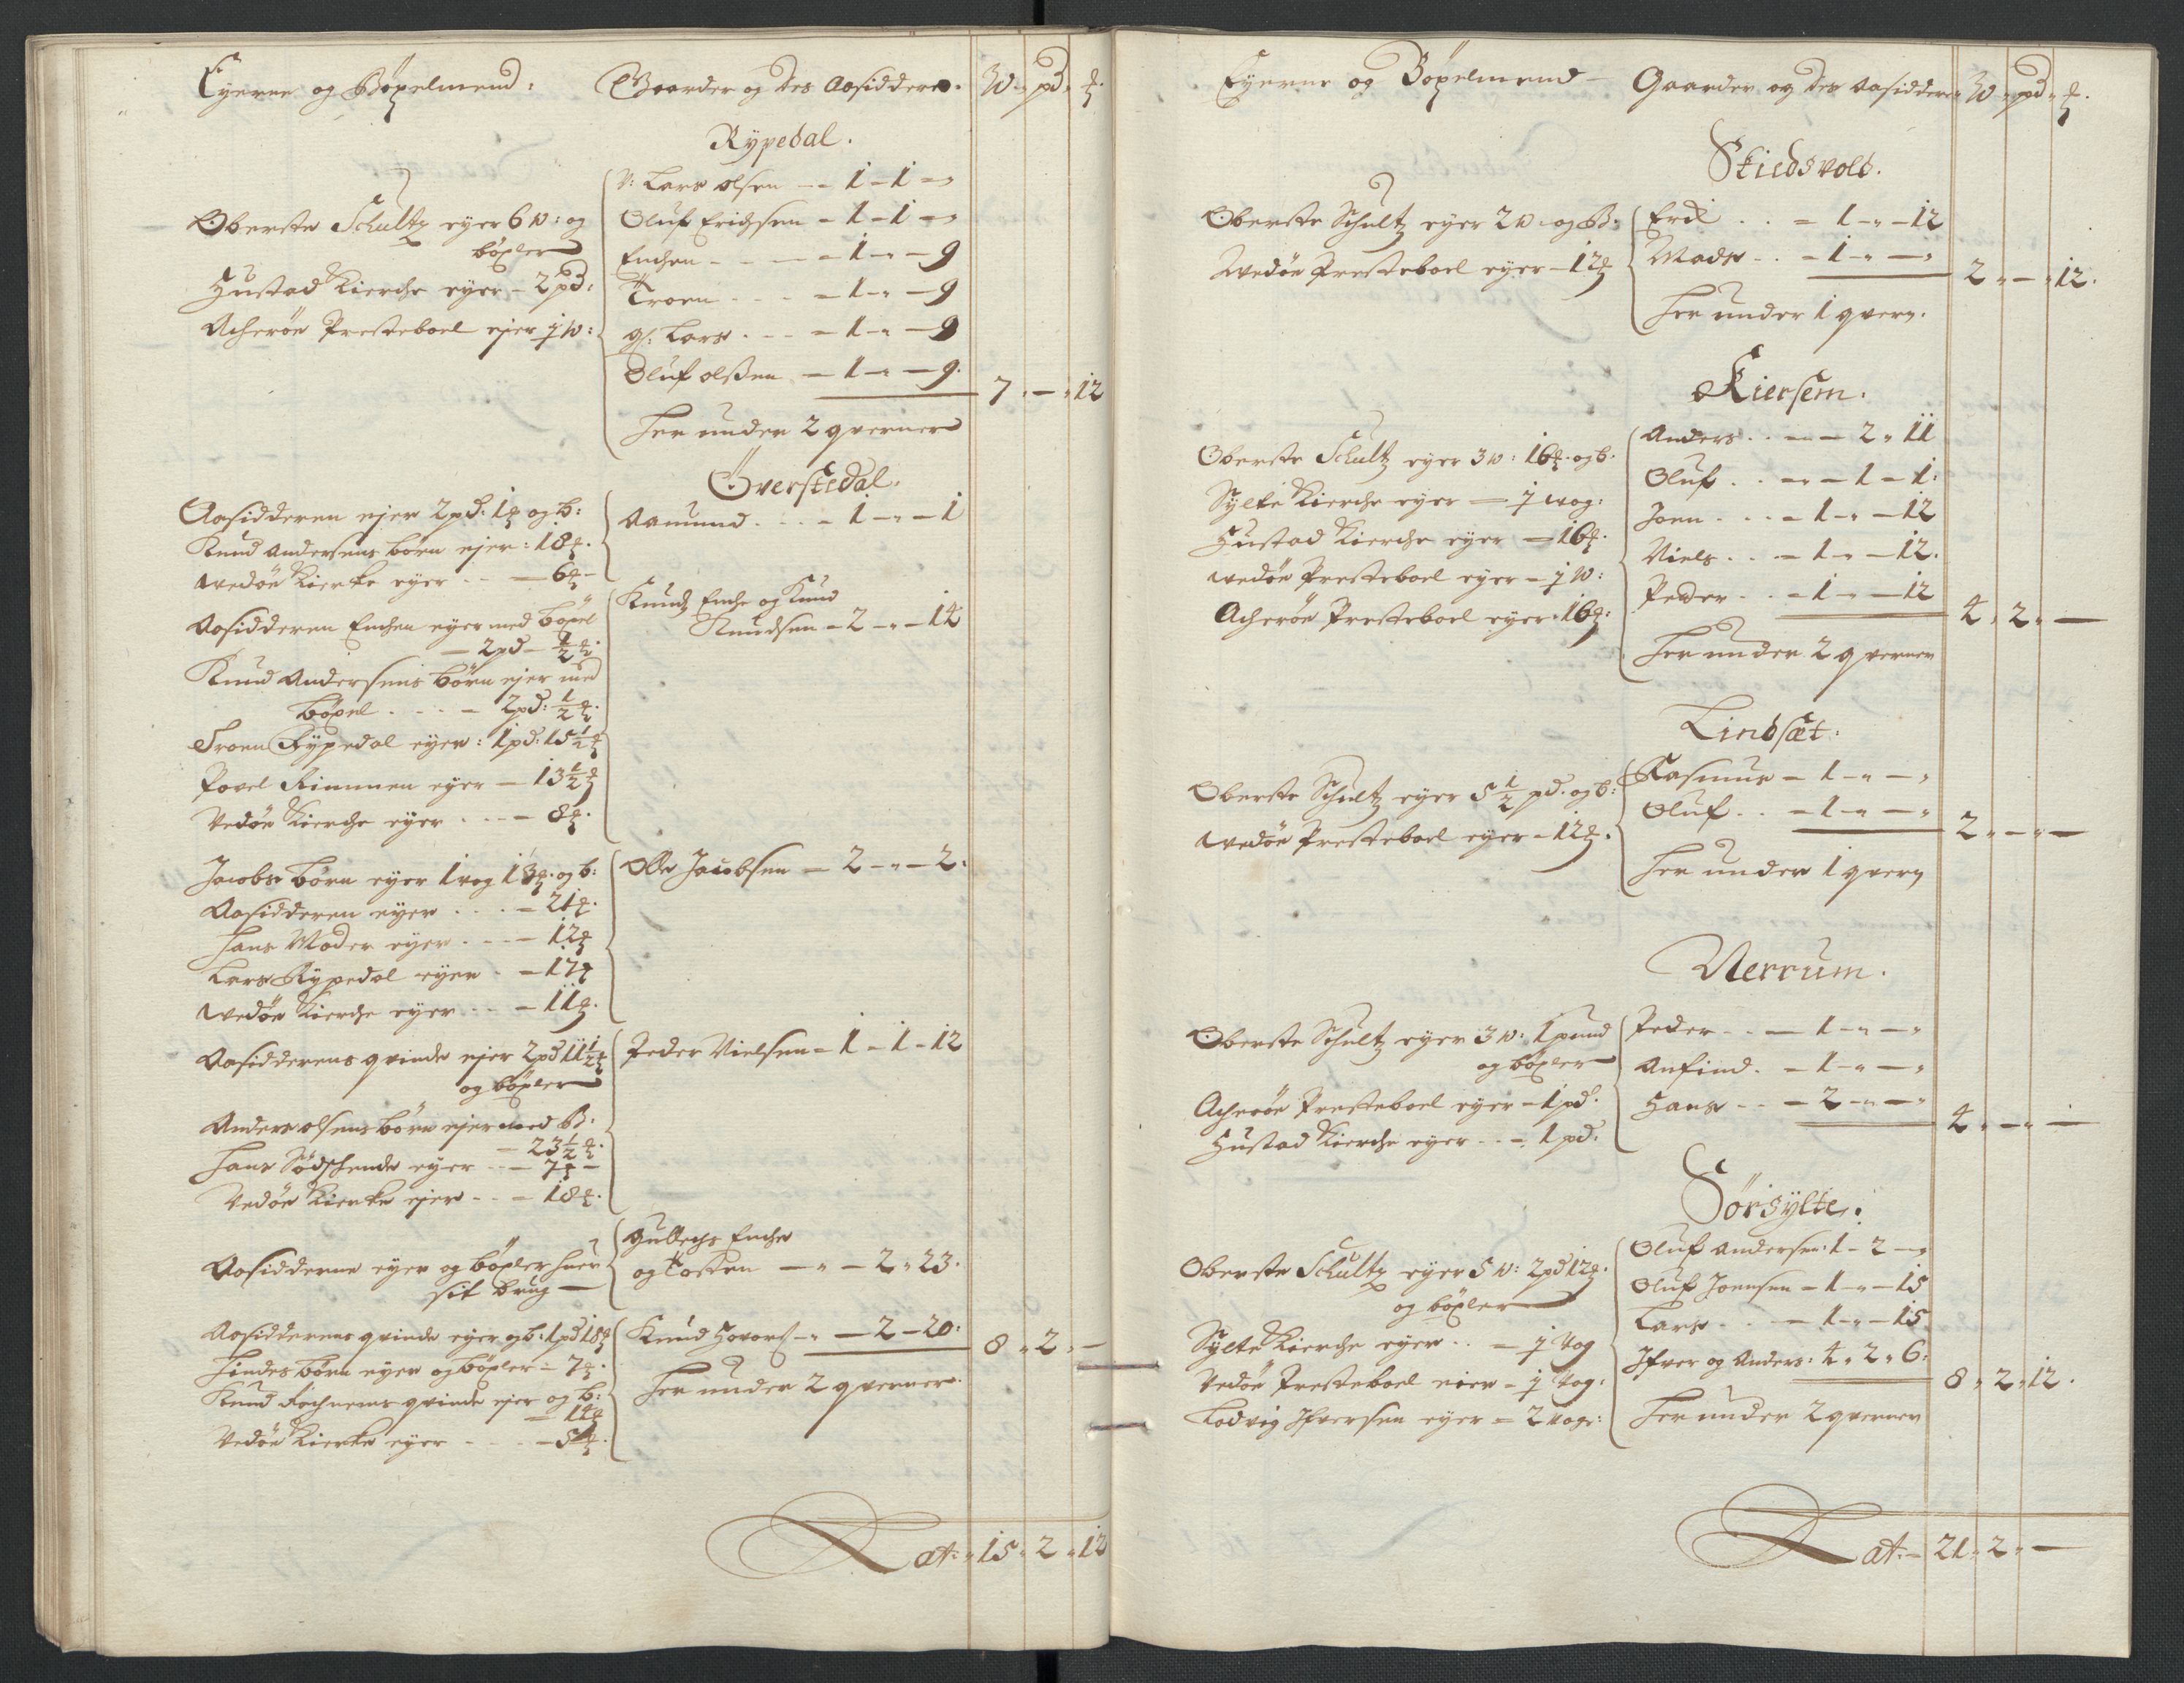 Eyerne og Böxelmend: Gaarder og des Aasiddere. W. pd. ℔.
Rypedal.
Oberste Schultz eyer 6 W: og
böxler
Hustad Kierche eyer - 2 pd:
Acheröe Presteboel ejer j W:
N: Lars Olsen - 1 - 1 -
Oluf Erichsen - 1 - 1 -
Erichen - 1 - " - 9
Troen - 1 - " - 9
gl: Lars - 1 - " - 9
Oluf Olsen - 1 - " - 9.
7 " - " 12
Her under 2 qverner
Överstedal.
Aasidderen ejer 2 pd: 1 ℔ og b:
Knud Andersens börn ejer: 18 ℔.
Wedöe Kierke eyer - 6 ℔ -
Aamund - 1 - " - 1
Aasidderen Erichen eyer med böxel
- 2 pd - ½ ℔.
Knud Andersens börn ejer med
böxel - 2 pd: ½ ℔.
Troen Rypedal eyer: 1 pd: 15½ ℔
Povel Rimmen eyer - 13½ ℔
Vedöe Kierche eyer - 8 ℔.
Knudz Erich og Knud
Knudsen - 2 - " - 14
Jacobs börn eyer 1 vog 13 ℔. og b:
Aasidderen eyer - 21 ℔.
Hans Moder eyer - 12 ℔
Lars Rypedal eyer - 17 ℔
Wedöe Kierche eyer - 11 ℔.
Olle Jacobsen - 2 - " - 2.
Aasidderens qvinde ejer 2 pd 11½ ℔
og böxler
Anders Olsens börn ejer med B:
- 23½ ℔.
Hans Södschende eyer - 7 ℔ -
Vedöe Kierke ejer - 18 ℔.
Peder Nielsen - 1 - 1 - 12
Aasidderne eyer og böxler huer
sit brug -
Gulbechs Erich
og Tosten - " - 2 " 23.
Aasidderens qvinde eyer og b: 1 pd 18 ℔
Hindes börn eyer og böxler - 7 ℔.
Knud qvinde ejer og b:
- 14 ℔
Vedöe Kierke eyer - 5 ℔.
Knud - " - 2 - 20.
8 " 2 " -
Her under 2 qverner.
Lat: " 15 " 2 " 12
Eyerne og Böxelmend - Gaarder og des Aasiddere W " pd " ℔.
Skiedsvold.
Oberste Schultz eyer 2 W. og B:
Wedöe Presteboel eyer - 12 ℔
Erich - 1 - " - 12
Mads - 1 - " - "
2 " - " 12.
Her under 1 qvern.
Kiersem.
Oberste Schultz eyer 3 W: 16 ℔. og b.
Sylte Kierche eyer - j wog:
Hustad Kierche eyer - 16 ℔.
Wedöe Presteboel eyer - j W:
Acheröe Presteboel eyer 16 ℔:
Anders - 2 " 11
Oluf - " - 1 - 1:
Joen - 1 - " - 12
Niels - 1 - " - 12.
Peder - 1 - " - 12
4 " 2 " -
Her under 2 qverner
Lindsæt.
Oberste Schultz eyer 5½ pd. og b:
Wedöe Presteboel eyer - 12 ℔.
Rasmus - 1 - " - "
Oluf - 1 - " - "
2 " - " -
Her under 1 qvern
Nerrum.
Oberste Schultz eyer 3 W: 1 pund
og böxler
Acheröe Presteboel eyer - 1 pd.
Hustad Kierche eyer - 1 pd.
Peder - 1 - " - "
Anfind. - 1 - " - "
Hans - 2 - " - "
4 " - " -
Sörsylte.
Oberste Schultz eyer 5 W: 2 pd 12 ℔.
og böxler
Sylte Kierche eyer - j Vog
Vedöe Presteboel eier - j Vog:
Lodvig Ifversen eyer - 2 Voger:
Oluf Andersen: 1 - 2 - "
Oluf Joensen - 1 - " - 15
Lars - 1 - " - 15
Ifver og Anders: 4 " 2 " 6:
8 " 2 " 12.
Her under 2 qverner
Lat: - 21 " 2 " -